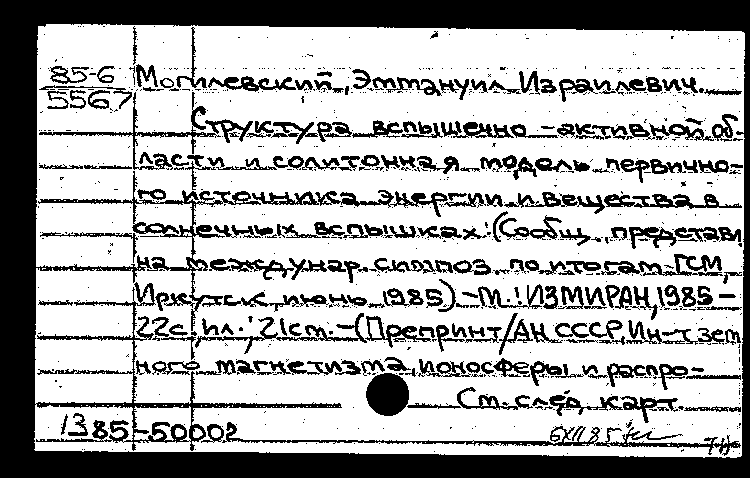 85-6
5567
Могилевский, Эммануил Израилевич.
Структура вспышечно-активной об-
ласти и солитонная модель первично-
го источника энергии и вещества в
солнечных вспышках: (Сообщ. представл
на междунар. симпоз. по итогам ГСМ,
Иркутск, июнь 1985) - М.: ИЗМИРАН, 1985 -
22с., ил.; 21см. - (Препринт/АН СССР, Ин-т зем
ного магнетизма, ионосферы и распро-
См. след. карт.
1385-50002
6XII85